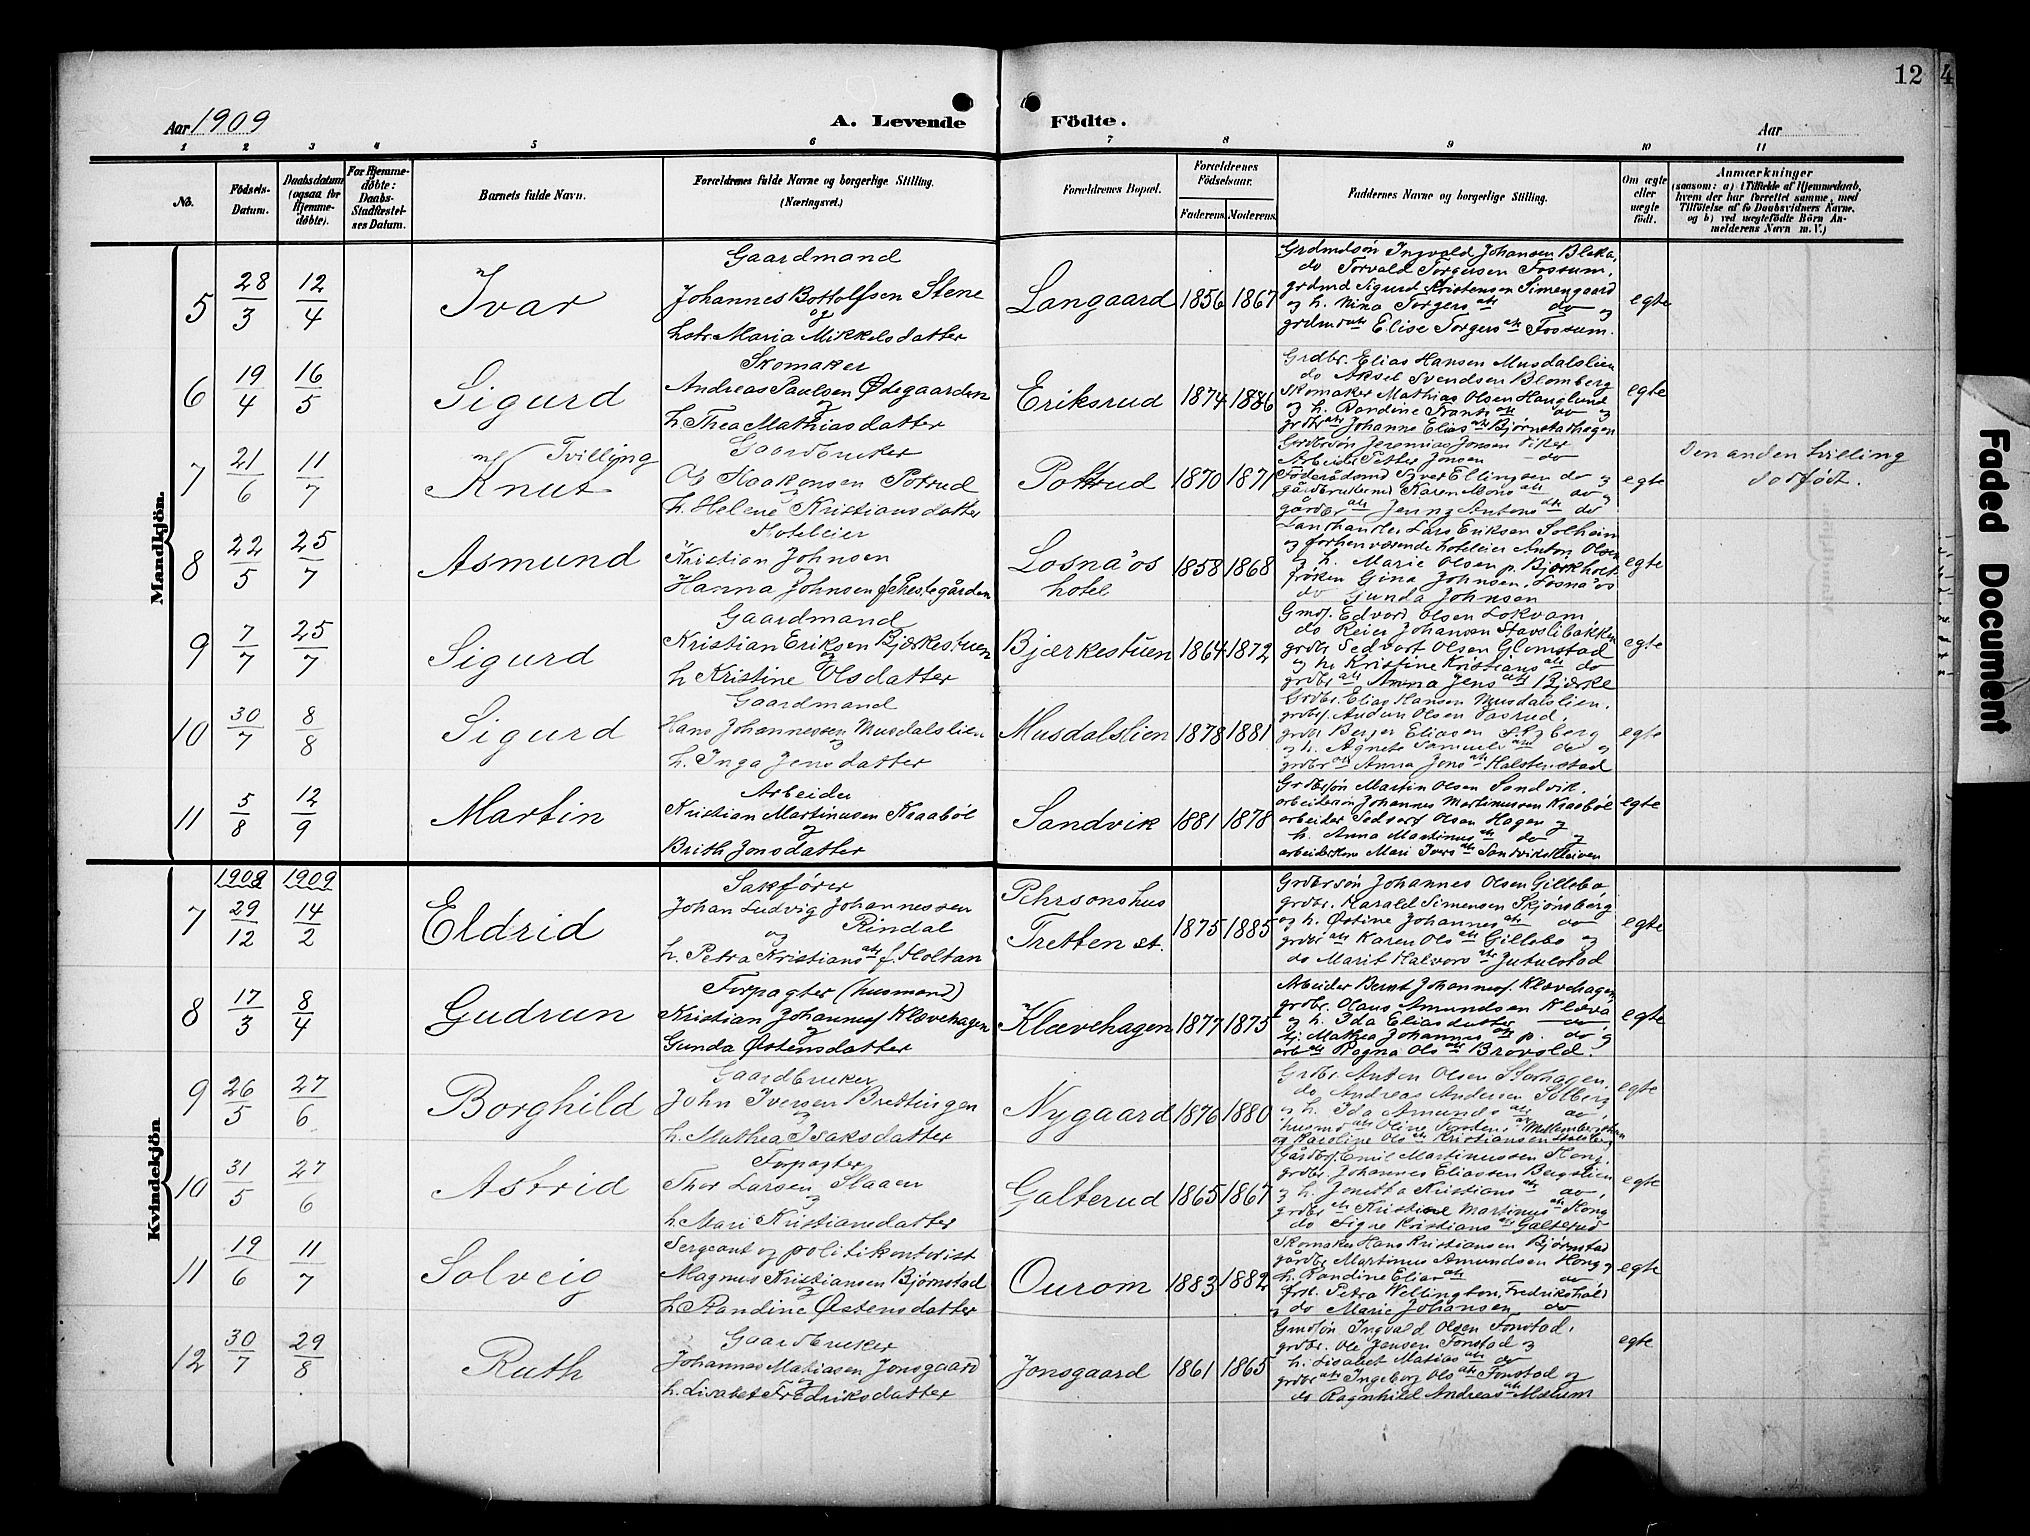 12
4
Aar 1909
A. Levende Födte.
Aar
1 2 3 4 5 6 7 8 9 10 11
No.
Födsels-Datum.
Daabsdatum (ogsaa for Hjemme-döbte).
For Hjemme-döbte: Daabs-Stadfæstel-ses Datum.
Barnets fulde Navn.
Forældrenes fulde Navne og borgerlige Stilling. (Næringsvei.)
Forældrenes Bopæl.
Forældrenes Födselsaar.
Faderens. Moderens.
Faddernes Navne og borgerlige Stilling.
Om ægte eller uægte födt.
Anmærkninger
(saasom: a) i Tilfælde af Hjemmedaab, hvem der har forrettet samme, med Tilföielse af to Daabsvidners Navne, og b) ved uægtefödte Börn An-melderens Navn m. V.)
Mandkjön.
5 28/3 12/4 Ivar
Gaardmand
Johannes Bottolfsen Stene
og
hstr. Maria Mikkelsdatter
Langaard 1856 1867
Grdmdsön Ingvald Johansen Bleka,
do Torvald Torgersen Fossum,
grdmd Sigurd Kristensen Simengaard
og h. Nina Torgers dtr do og
Elise Torgers dtr Fossum.
egte
6 19/4 16/5 Sigurd
Skomaker
Andreas Paulsen Ødegaarden
og
h. Thea Mathiasdatter
Eriksrud 1874 1886
Grdbr. Elias Hansen Musdalslien
do Aksel Svendsen Blomberg
Skomaker Mathias Olsen Hauglund
og h. Randine Frants dtr do og
Johanne Elias dtr Bjørnstadhagen
egte
7 21/6 11/7 Tvilling
Knut
Gaardbruker
Ole Haakensen Potrud
og
h. Helene Kristiansdatter
Pottrud 1870 1871
Grdbrsön Jeremias Jonsen
Arbeider Petter Jonsen do
Föderådsmd Syver Ellingsen do og
Karen Mons dtr do og
Jenny Antons dtr do
egte
Den anden tvilling
dødfødt.
8 22/5 25/7 Asmund
Hoteleier
Kristian Johnsen
og
Hanna Johnsen f. Prestegården
Losna'os
hotel
1858 1868
Landhandler Lars Eriksen Solheim
og forhenværende hoteleier Anton Olsen
og h. Marie Olsen p. Bjørkholt
frøken Gina Johnsen, Losna'os
do Gunda Johnsen
egte
9 7/7 25/7 Sigurd
Gaardmand
Kristian Eriksen Bjærkestuen
og
h. Kristine Olsdatter
Bjærkestuen 1864 1872
Gmds. Edvard Olsen Lokvam
do Reier Johansen Stavslibakken
grdbr. Sedvart Olsen Glomstad
og h. Kristine Kristians dtr do
grdbr dtr Anna Jens dtr Bjerke
egte
10 30/7 8/8 Sigurd
Gaardmand
Hans Johannessen Musdalslien
og
h. Inga Jensdatter
Musdalslien 1878 1881
Grdbr. Elias Hansen Musdalslien.
Audun Olsen
Berger Eliasen Skyberg
og h. Agnete Samuels dtr do og
grdbr dtr Anna Jens dtr Halstenstad
egte
11 5/8 12/9 Martin
Arbeider
Kristian Martinusen Kraabøl
og
Brith Jonsdatter
Sandvik 1881 1878
Grdbrsön Martin Olsen Sandvik,
arbeidersön Johannes Martinussen Kraabøl
arbeider Sedvart Olsen Hagen og
h. Anna Martinus dtr do og
Mari Ivers dtr Sandvikskleiven
egte
Kvindekjön
1908 1909
7 29/12 14/2 Eldrid
Sakfører
Johan Ludvig Johannessen
og Rindal
h. Petra Kristians dtr f. Holtan
Pehrsonshus
Tretten st.
1875 1885
Grdbrsön Johannes Olsen Gillebo
grdbr. Harald Simensen Skjønsberg
og h. Østine Johannes dtr do
Karen Ols dtr Gillebo og
do Marit Halvors dtr Jutulstad
egte
8 17/3 8/4 Gudrun
Forpagter (husmand)
Kristian Johannesf Klævehagen
og
Gunda Østensdatter
Klævehagen 1877 1875
Arbeider Bernt Johannesf. Klævehagen
grdbr. Olaus Amundsen Klæva
og h. Ida Eliasdatter do,
Mathea Johannes dtr p. do og
arb dtr Ragna Ols dtr Brovold.
egte
9 26/5 27/6 Borghild
Gaardbruker
John Iversen Brettingen
og
h. Mathea Isaksdatter
Nygaard 1876 1880
Grdbr. Anton Olsen Storhagen,
do Andreas Andersen Solberg
og h. Ida Amunds dtr do,
Oline
og Karoline Ols dtr Kristiansen
egte
10 31/5 27/6 Astrid
Forpagter
Thor Larsen Slaaen
og
h. Mari Kristiansdatter
Galterud 1865 1867
Gårdbr. Emil Martinussen Hong
grdbr. Johannes Eliassen Bergslien
og h. Jonetta Kristians dtr do,
grdbr dtr Kristine Martinus dtr Hong
do Signe Kristians dtr Galterud
egte
11 19/6 11/7 Solveig
Sergeant og politikontorist
Magnus Kristiansen Bjørnstad
og
h. Randine Østensdatter
Ourom 1883 1882
Skomaker Hans Kristiansen Bjørnstad
gårdbr Martinus Amundsen Hong og
h. Randine Elias dtr do
frk. Petra Wellington, Fredrikshald
og do Marie Johansen do
egte
12 30/7 29/8 Ruth
Gaardbruker
Johannes Matiasen Jonsgaard
og
h. Lisabet Fredriksdatter
Jonsgaard 1861 1865
Gmdsön Ingvald Olsen Fonstad,
grdbr. Ole Jensen Fonstad og
h. Lisabet Matias dtr do
grdbr dtr Ingeborg Ols dtr Fonstad og
do Ragnhild Andreas dtr Mælum
egte
Faded Document